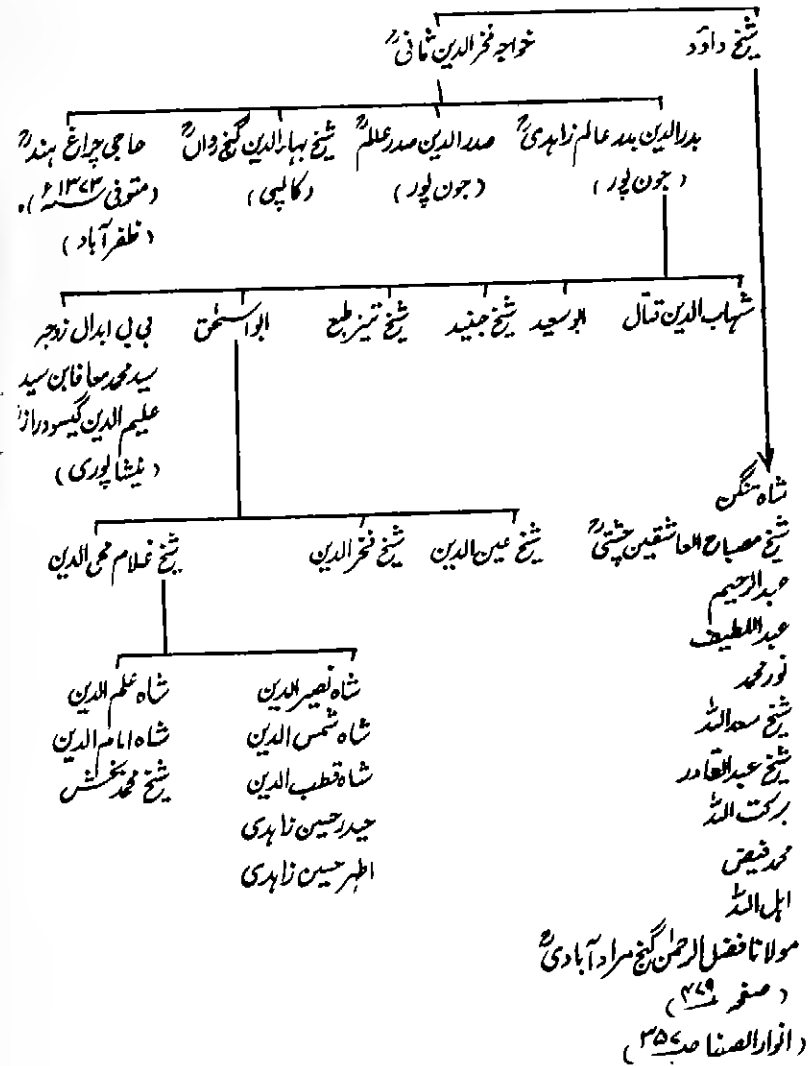 شیخ داؤد
خواجہ فخرالدین ثانیؒ
بدرالدین بدر عالم زاہدیؒ
( جون پور )
صدرالدین صدر عالمؒ
( جون پور )
شیخ بہارالدین گنج رواںؒ
( کالپی )
حاجی چراغ ہندؒ
(متوفی ۱۳۷۳ء)
( ظفر آباد )
شہاب الدین قتال
ابو سعید
شیخ جنید
شیخ تیز طبع
ابو اسحٰق
بی بی ابدال زوجہ
سید محمد معافا ابن سید
علیم الدین گیسودراز
( نیشاپوری )
شیخ عین الدین
شیخ فخرالدین
شیخ غلام محی الدین
شاہ نصیرالدین
شاہ شمس الدین
شاہ قطب الدین
حیدر حسین زاہدی
اطہر حسین زاہدی
شاہ علم الدین
شاہ امام الدین
شیخ محمد بخش
شاہ منگن
شیخ مصباح العاشقین چشتیؒ
عبدالرحیم
عبداللطیف
نور محمد
شیخ سعد اللہ
شیخ عبدالقادر
برکت اللہ
محمد فیض
اہل اللہ
مولانا فضل الرحمٰن گنج مراد آبادیؒ
( صفحہ ۴۷۹ )
( انوار الصفا صـ ۳۵۷ )